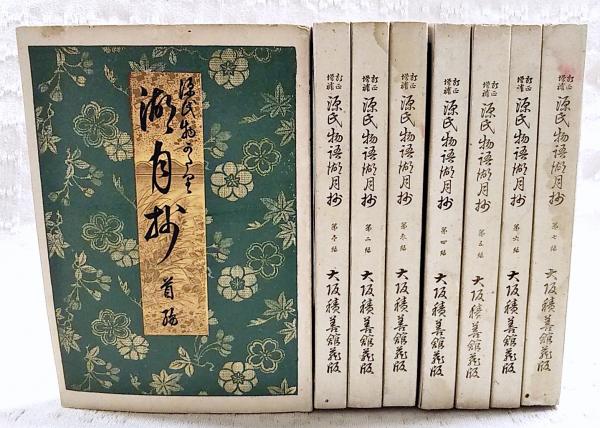 源氏物かたり
湖月抄
首巻
訂正
増補
源氏物語湖月抄
第壱編
大阪積善館蔵版
訂正
増補
源氏物語湖月抄
第二編
大阪積善館蔵版
訂正
増補
源氏物語湖月抄
第参編
大阪積善館蔵版
訂正
増補
源氏物語湖月抄
第四編
大阪積善館蔵版
訂正
増補
源氏物語湖月抄
第五編
大阪積善館蔵版
訂正
増補
源氏物語湖月抄
第六編
大阪積善館蔵版
訂正
増補
源氏物語湖月抄
第七編
大阪積善館蔵版